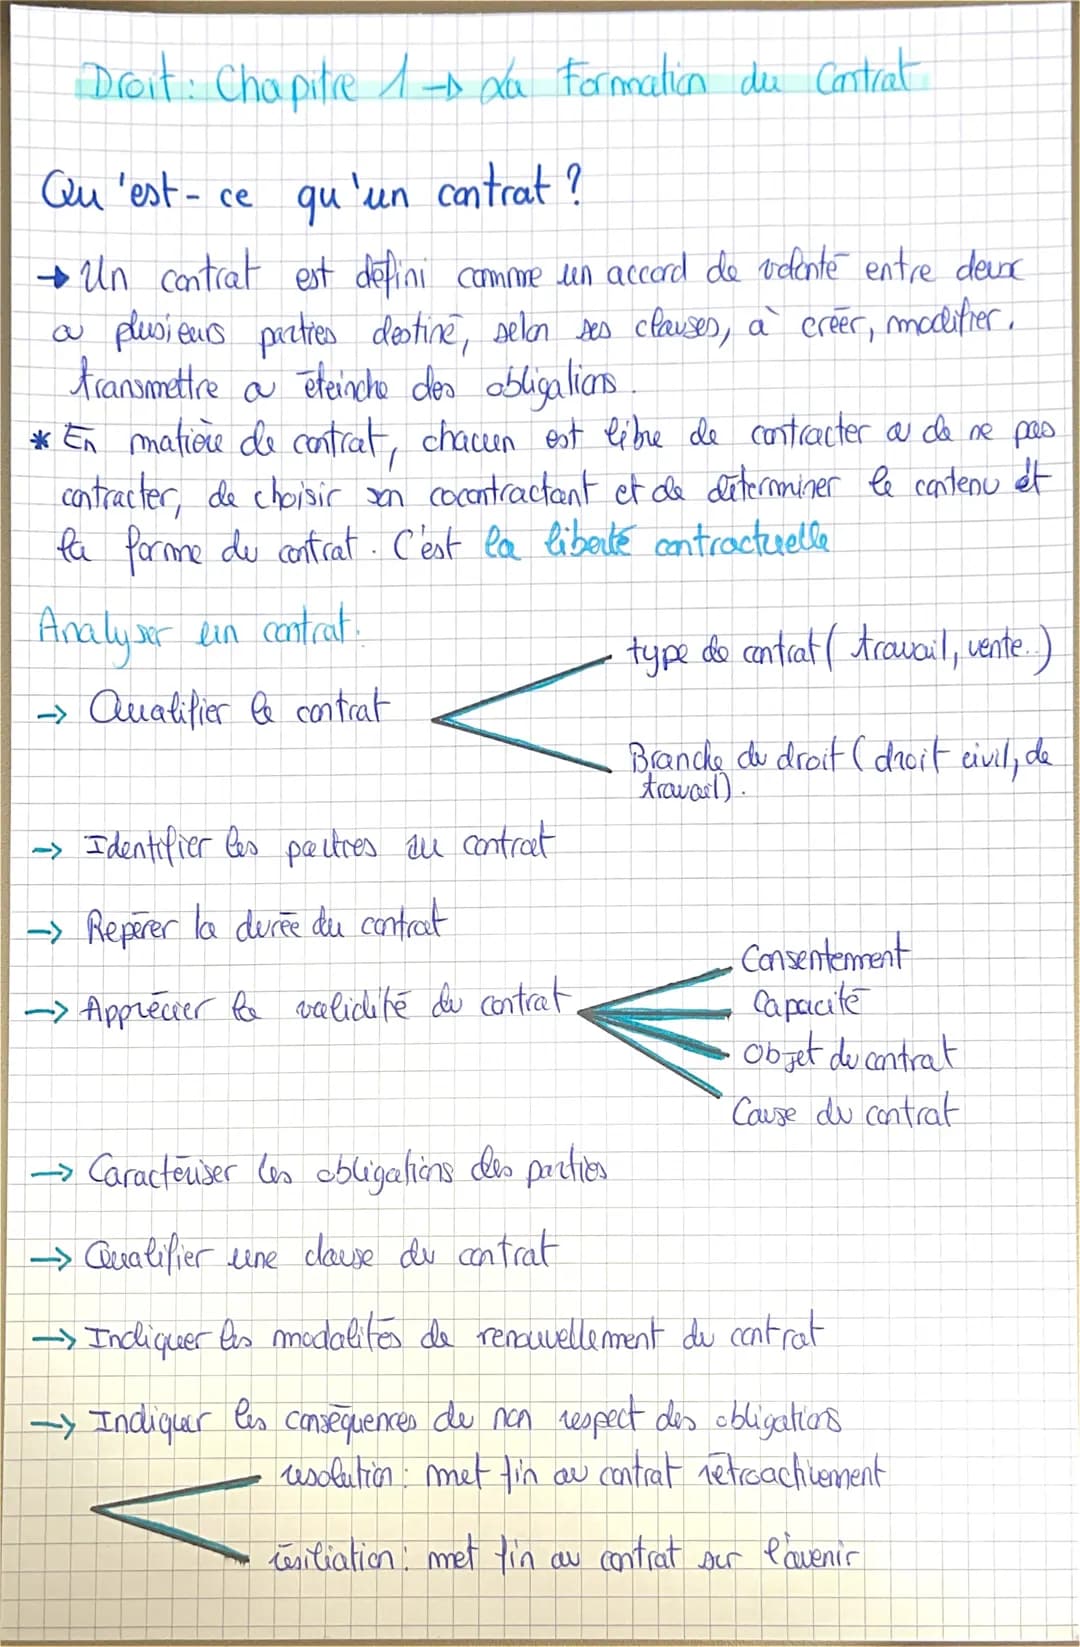 Droit : Chapitre 1 → La Formation du Contrat
Qu'est-ce qu'un contrat ?
→ Un contrat est défini comme un accord de volonté entre deux
ou plusieurs parties destiné, selon ses clauses, à créer, modifier,
transmettre ou éteindre des obligations.
* En matière de contrat, chacun est libre de contracter ou de ne pas
contracter, de choisir son cocontractant et de déterminer le contenu et
la forme du contrat. C'est la liberté contractuelle
Analyser un contrat.
type de contrat ( travail, vente..)
→ Qualifier le contrat
Branche du droit ( droit civil, de
travail).
→ Identifier les parties au contrat
→ Repérer la durée du contrat
Consentement
→ Apprécier la validité du contrat
Capacité
Objet du contrat
Cause du contrat
→ Caractériser les obligations des parties
→ Qualifier une clause du contrat
→ Indiquer les modalités de renouvellement du contrat
→ Indiquer les conséquences de non respect des obligations
resolution : met fin au contrat rétroactivement
résiliation : met fin au contrat sur l'avenir